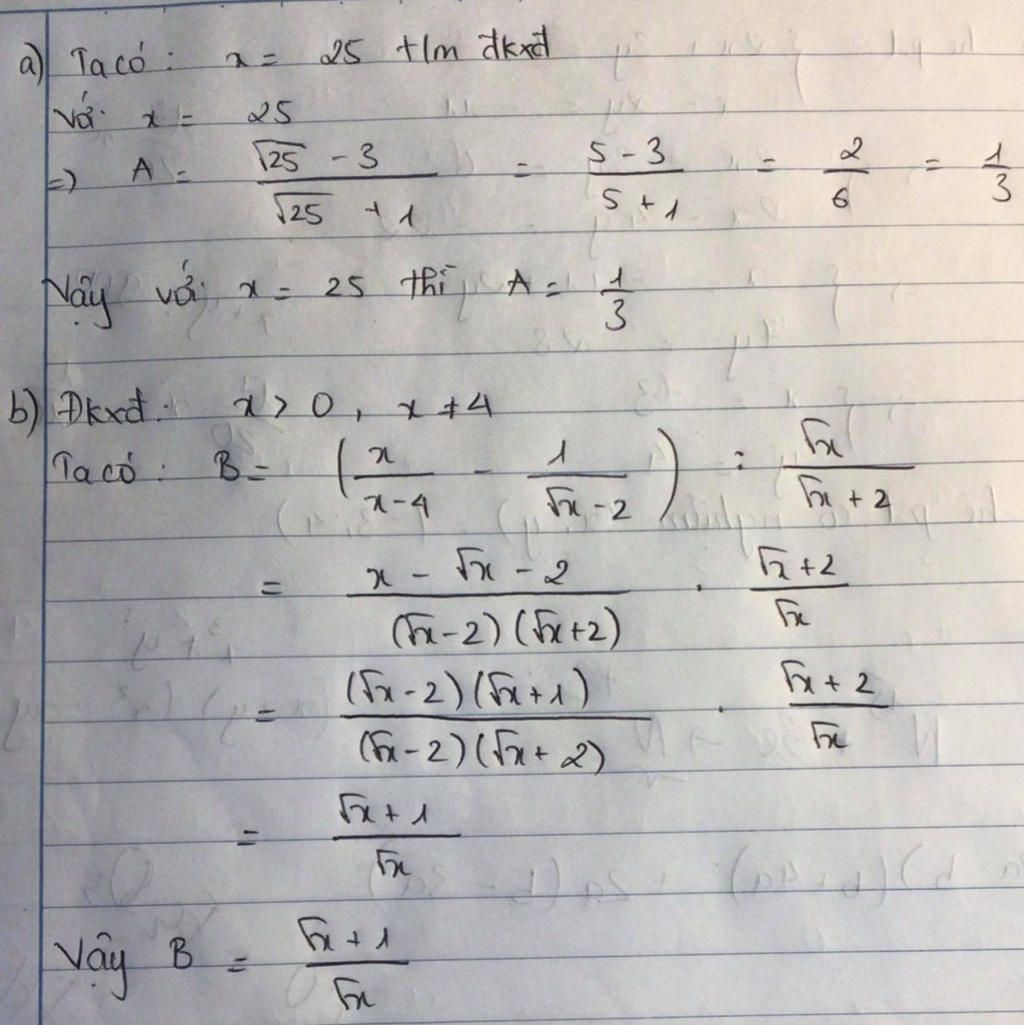 a) Ta có: x = 25 t/m đkxđ
với x = 25
=) A = (√25 - 3)/(√25 + 1) = (5 - 3)/(5 + 1) = 2/6 = 1/3
Vậy với x = 25 thì A = 1/3
b) Đkxđ: x > 0, x ≠ 4
Ta có: B = (x/(x-4) - 1/(√x - 2)) : √x/(√x + 2)
= (x - √x - 2)/((√x - 2)(√x + 2)) . (√x + 2)/√x
= ((√x - 2)(√x + 1))/((√x - 2)(√x + 2)) . (√x + 2)/√x
= (√x + 1)/√x
Vậy B = (√x + 1)/√x